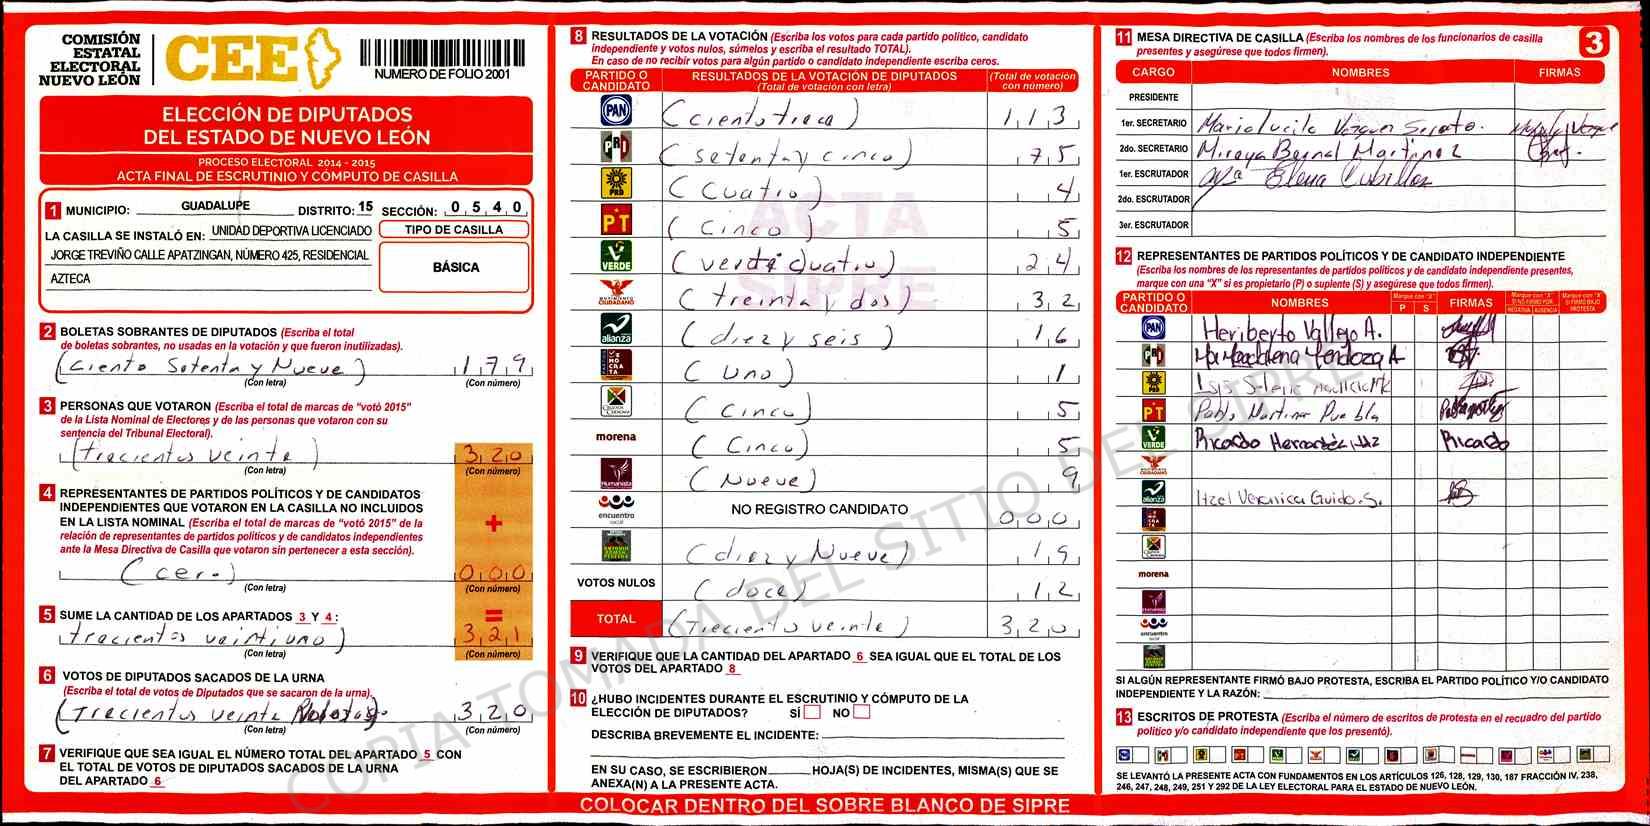 COMISIÓN
ESTATAL
ELECTORAL
NUEVO LEÓN
CEE
NUMERO DE FOLIO 2001
ELECCIÓN DE DIPUTADOS
DEL ESTADO DE NUEVO LEÓN
PROCESO ELECTORAL 2014 - 2015
ACTA FINAL DE ESCRUTINIO Y CÓMPUTO DE CASILLA
1 MUNICIPIO: GUADALUPE DISTRITO: 15 SECCIÓN: 0 5 4 0
LA CASILLA SE INSTALÓ EN: UNIDAD DEPORTIVA LICENCIADO
JORGE TREVIÑO CALLE APATZINGAN, NÚMERO 425, RESIDENCIAL
AZTECA
TIPO DE CASILLA
BÁSICA
2 BOLETAS SOBRANTES DE DIPUTADOS (Escriba el total
de boletas sobrantes, no usadas en la votación y que fueron inutilizadas).
(Ciento Setenta y Nueve) 1 7 9
(Con letra) (Con número)
3 PERSONAS QUE VOTARON (Escriba el total de marcas de "votó 2015"
de la Lista Nominal de Electores y de las personas que votaron con su
sentencia del Tribunal Electoral).
(trecientos veinte) 3 2 0
(Con letra) (Con número)
4 REPRESENTANTES DE PARTIDOS POLÍTICOS Y DE CANDIDATOS
INDEPENDIENTES QUE VOTARON EN LA CASILLA NO INCLUIDOS
EN LA LISTA NOMINAL (Escriba el total de marcas de "votó 2015" de la
relación de representantes de partidos políticos y de candidatos independientes
ante la Mesa Directiva de Casilla que votaron sin pertenecer a esta sección).
+
(cero) 0 0 0
(Con letra) (Con número)
5 SUME LA CANTIDAD DE LOS APARTADOS 3 Y 4:
=
trecientos veintiuno) 3 2 1
(Con letra) (Con número)
6 VOTOS DE DIPUTADOS SACADOS DE LA URNA
(Escriba el total de votos de Diputados que se sacaron de la urna).
(Trecientos veinte 3 2 0
(Con letra) (Con número)
7 VERIFIQUE QUE SEA IGUAL EL NÚMERO TOTAL DEL APARTADO 5 CON
EL TOTAL DE VOTOS DE DIPUTADOS SACADOS DE LA URNA
DEL APARTADO 6
8 RESULTADOS DE LA VOTACIÓN (Escriba los votos para cada partido político, candidato
independiente y votos nulos, súmelos y escriba el resultado TOTAL).
En caso de no recibir votos para algún partido o candidato independiente escriba ceros.
PARTIDO O CANDIDATO RESULTADOS DE LA VOTACIÓN DE DIPUTADOS (Total de votación con letra) (Total de votación con número)
PAN (ciento trece) 1 1 3
PRI (setenta y cinco) 7 5
PRD (cuatro) 4
PT (cinco) 5
VERDE (veinte quatro) 2 4
MOVIMIENTO CIUDADANO (treinta y dos) 3 2
alianza (diez y seis) 1 6
DEMOCRATA (uno) 1
CRUZADA CIUDADANA (cinco) 5
morena (Cinco) 5
Humanista (Nueve) 9
encuentro social NO REGISTRO CANDIDATO 0 0 0
(diez y Nueve) 1 9
VOTOS NULOS (doce) 1 2
TOTAL (Treciento veinte) 3 2 0
ACTA
SIPRE
9 VERIFIQUE QUE LA CANTIDAD DEL APARTADO 6 SEA IGUAL QUE EL TOTAL DE LOS
VOTOS DEL APARTADO 8
10 ¿HUBO INCIDENTES DURANTE EL ESCRUTINIO Y CÓMPUTO DE LA
ELECCIÓN DE DIPUTADOS? SÍ NO
DESCRIBA BREVEMENTE EL INCIDENTE:
EN SU CASO, SE ESCRIBIERON HOJA(S) DE INCIDENTES, MISMA(S) QUE SE
ANEXA(N) A LA PRESENTE ACTA.
COLOCAR DENTRO DEL SOBRE BLANCO DE SIPRE
11 MESA DIRECTIVA DE CASILLA (Escriba los nombres de los funcionarios de casilla
presentes y asegúrese que todos firmen).
3
CARGO NOMBRES FIRMAS
PRESIDENTE
1er. SECRETARIO Maria lucila Vazquez Serato.
2do. SECRETARIO Mireya Bernal Martinez
1er. ESCRUTADOR Ma Elena Cubillos
2do. ESCRUTADOR
3er. ESCRUTADOR
12 REPRESENTANTES DE PARTIDOS POLÍTICOS Y DE CANDIDATO INDEPENDIENTE
(Escriba los nombres de los representantes de partidos políticos y de candidato independiente presentes,
marque con una "X" si es propietario (P) o suplente (S) y asegúrese que todos firmen).
PARTIDO O CANDIDATO NOMBRES Marque con "X" P S FIRMAS Marque con "X" SI NO FIRMÓ POR NEGATIVA AUSENCIA Marque con "X" SI FIRMÓ BAJO PROTESTA
PAN Heriberto Vallejo A.
PRI Ma Magdalena Mendoza A
PRD
PT Pablo Martinez Puebla
VERDE Ricardo Hernández Ricardo
MOVIMIENTO CIUDADANO
alianza Itzel Veronica Guido. S.
morena
encuentro social
SI ALGÚN REPRESENTANTE FIRMÓ BAJO PROTESTA, ESCRIBA EL PARTIDO POLÍTICO Y/O CANDIDATO
INDEPENDIENTE Y LA RAZÓN:
13 ESCRITOS DE PROTESTA (Escriba el número de escritos de protesta en el recuadro del partido
político y/o candidato independiente que los presentó).
SE LEVANTÓ LA PRESENTE ACTA CON FUNDAMENTOS EN LOS ARTÍCULOS 126, 128, 129, 130, 187 FRACCIÓN IV, 238,
246, 247, 248, 249, 251 Y 292 DE LA LEY ELECTORAL PARA EL ESTADO DE NUEVO LEÓN.
COPIA TOMADA DEL SITIO DEL SIPRE